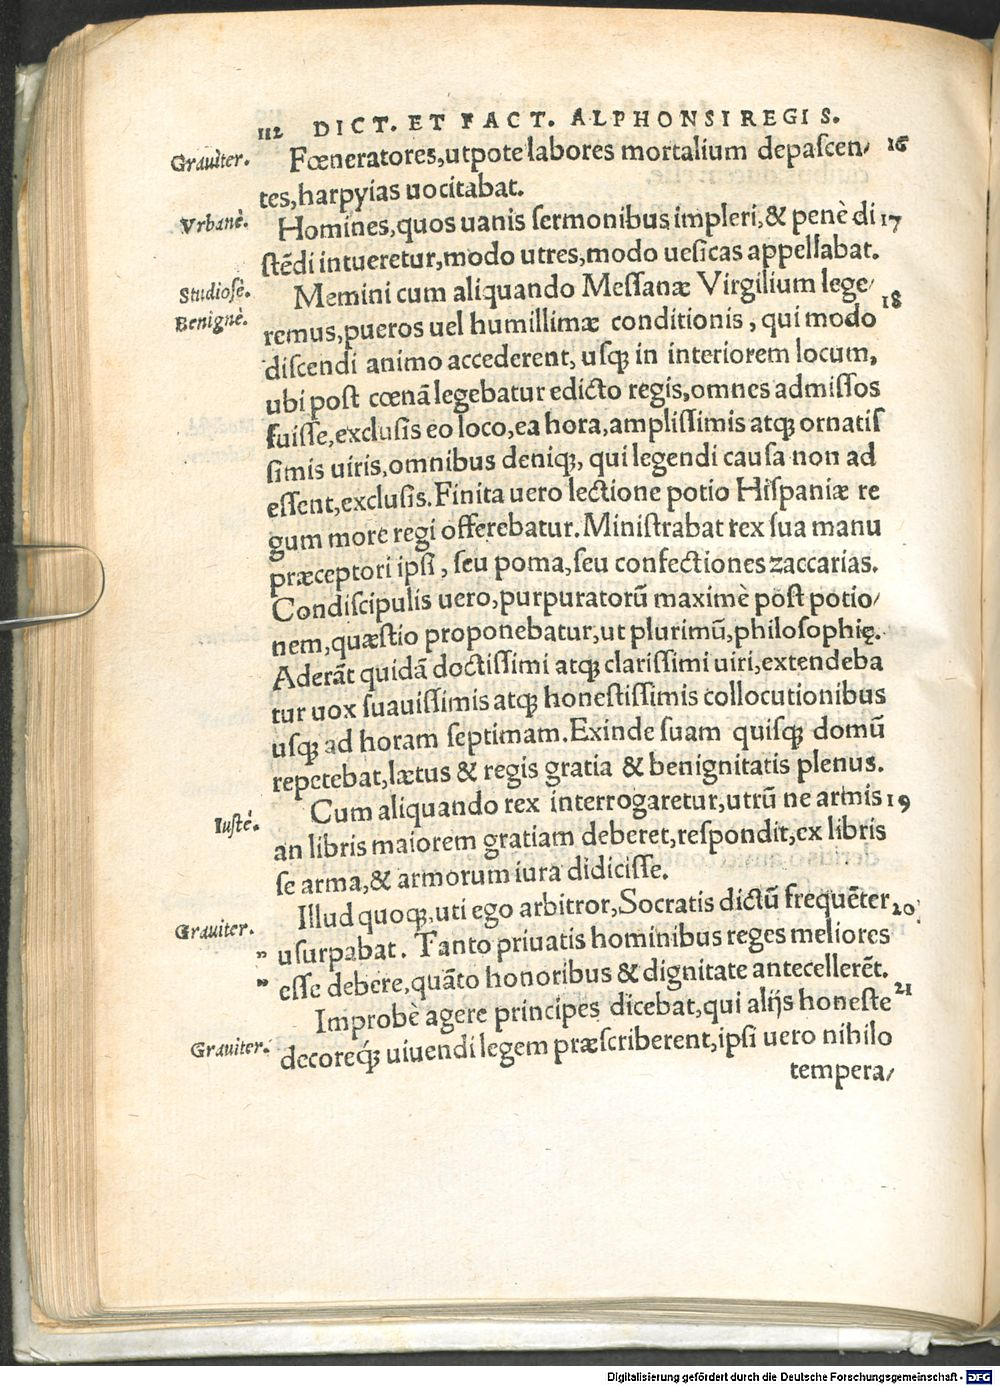 112 DICT. ET FACT. ALPHONSI REGIS.
Grauiter. Fœneratores,utpote labores mortalium depaſcen/ 16
tes,harpyias uocitabat.
Vrbanè. Homines,quos uanis ſermonibus impleri,& penè di 17
ſtẽdi intueretur,modo utres,modo ueſicas appellabat.
Studioſè. Memini cum aliquando Meſſanæ Virgilium lege/ 18
Benignè. remus,pueros uel humillimæ conditionis, qui modo
diſcendi animo accederent, uſqꝫ in interiorem locum,
ubi poſt cœnã legebatur edicto regis,omnes admiſſos
fuiſſe,excluſis eo loco,ea hora,ampliſſimis atqꝫ ornatiſ
ſimis uiris,omnibus deniqꝫ, qui legendi cauſa non ad
eſſent,excluſis. Finita uero lectione potio Hiſpaniæ re
gum more regi offerebatur. Miniſtrabat rex ſua manu
præceptori ipſi, ſeu poma,ſeu confectiones zaccarias.
Condiſcipulis uero,purpuratorũ maximè poſt potio/
nem,quæſtio proponebatur,ut plurimũ,philoſophię.
Aderãt quidã doctiſſimi atqꝫ clariſſimi uiri,extendeba
tur uox ſuauiſſimis atqꝫ honeſtiſſimis collocutionibus
uſqꝫ ad horam ſeptimam. Exinde ſuam quiſqꝫ domũ
repetebat,lætus & regis gratia & benignitatis plenus.
Iuſtè. Cum aliquando rex interrogaretur,utrũ ne armis 19
an libris maiorem gratiam deberet,reſpondit,ex libris
ſe arma,& armorum iura didiciſſe.
Grauiter. Illud quoqꝫ,uti ego arbitror,Socratis dictũ frequẽter 20
" uſurpabat. Tanto priuatis hominibus reges meliores
" eſſe debere,quãto honoribus & dignitate antecellerẽt.
Improbè agere principes dicebat,qui alijs honeſte 21
Grauiter. decoreqꝫ́ uiuendi legem præſcriberent,ipſi uero nihilo
tempera/
Digitalisierung gefördert durch die Deutsche Forschungsgemeinschaft - DFG